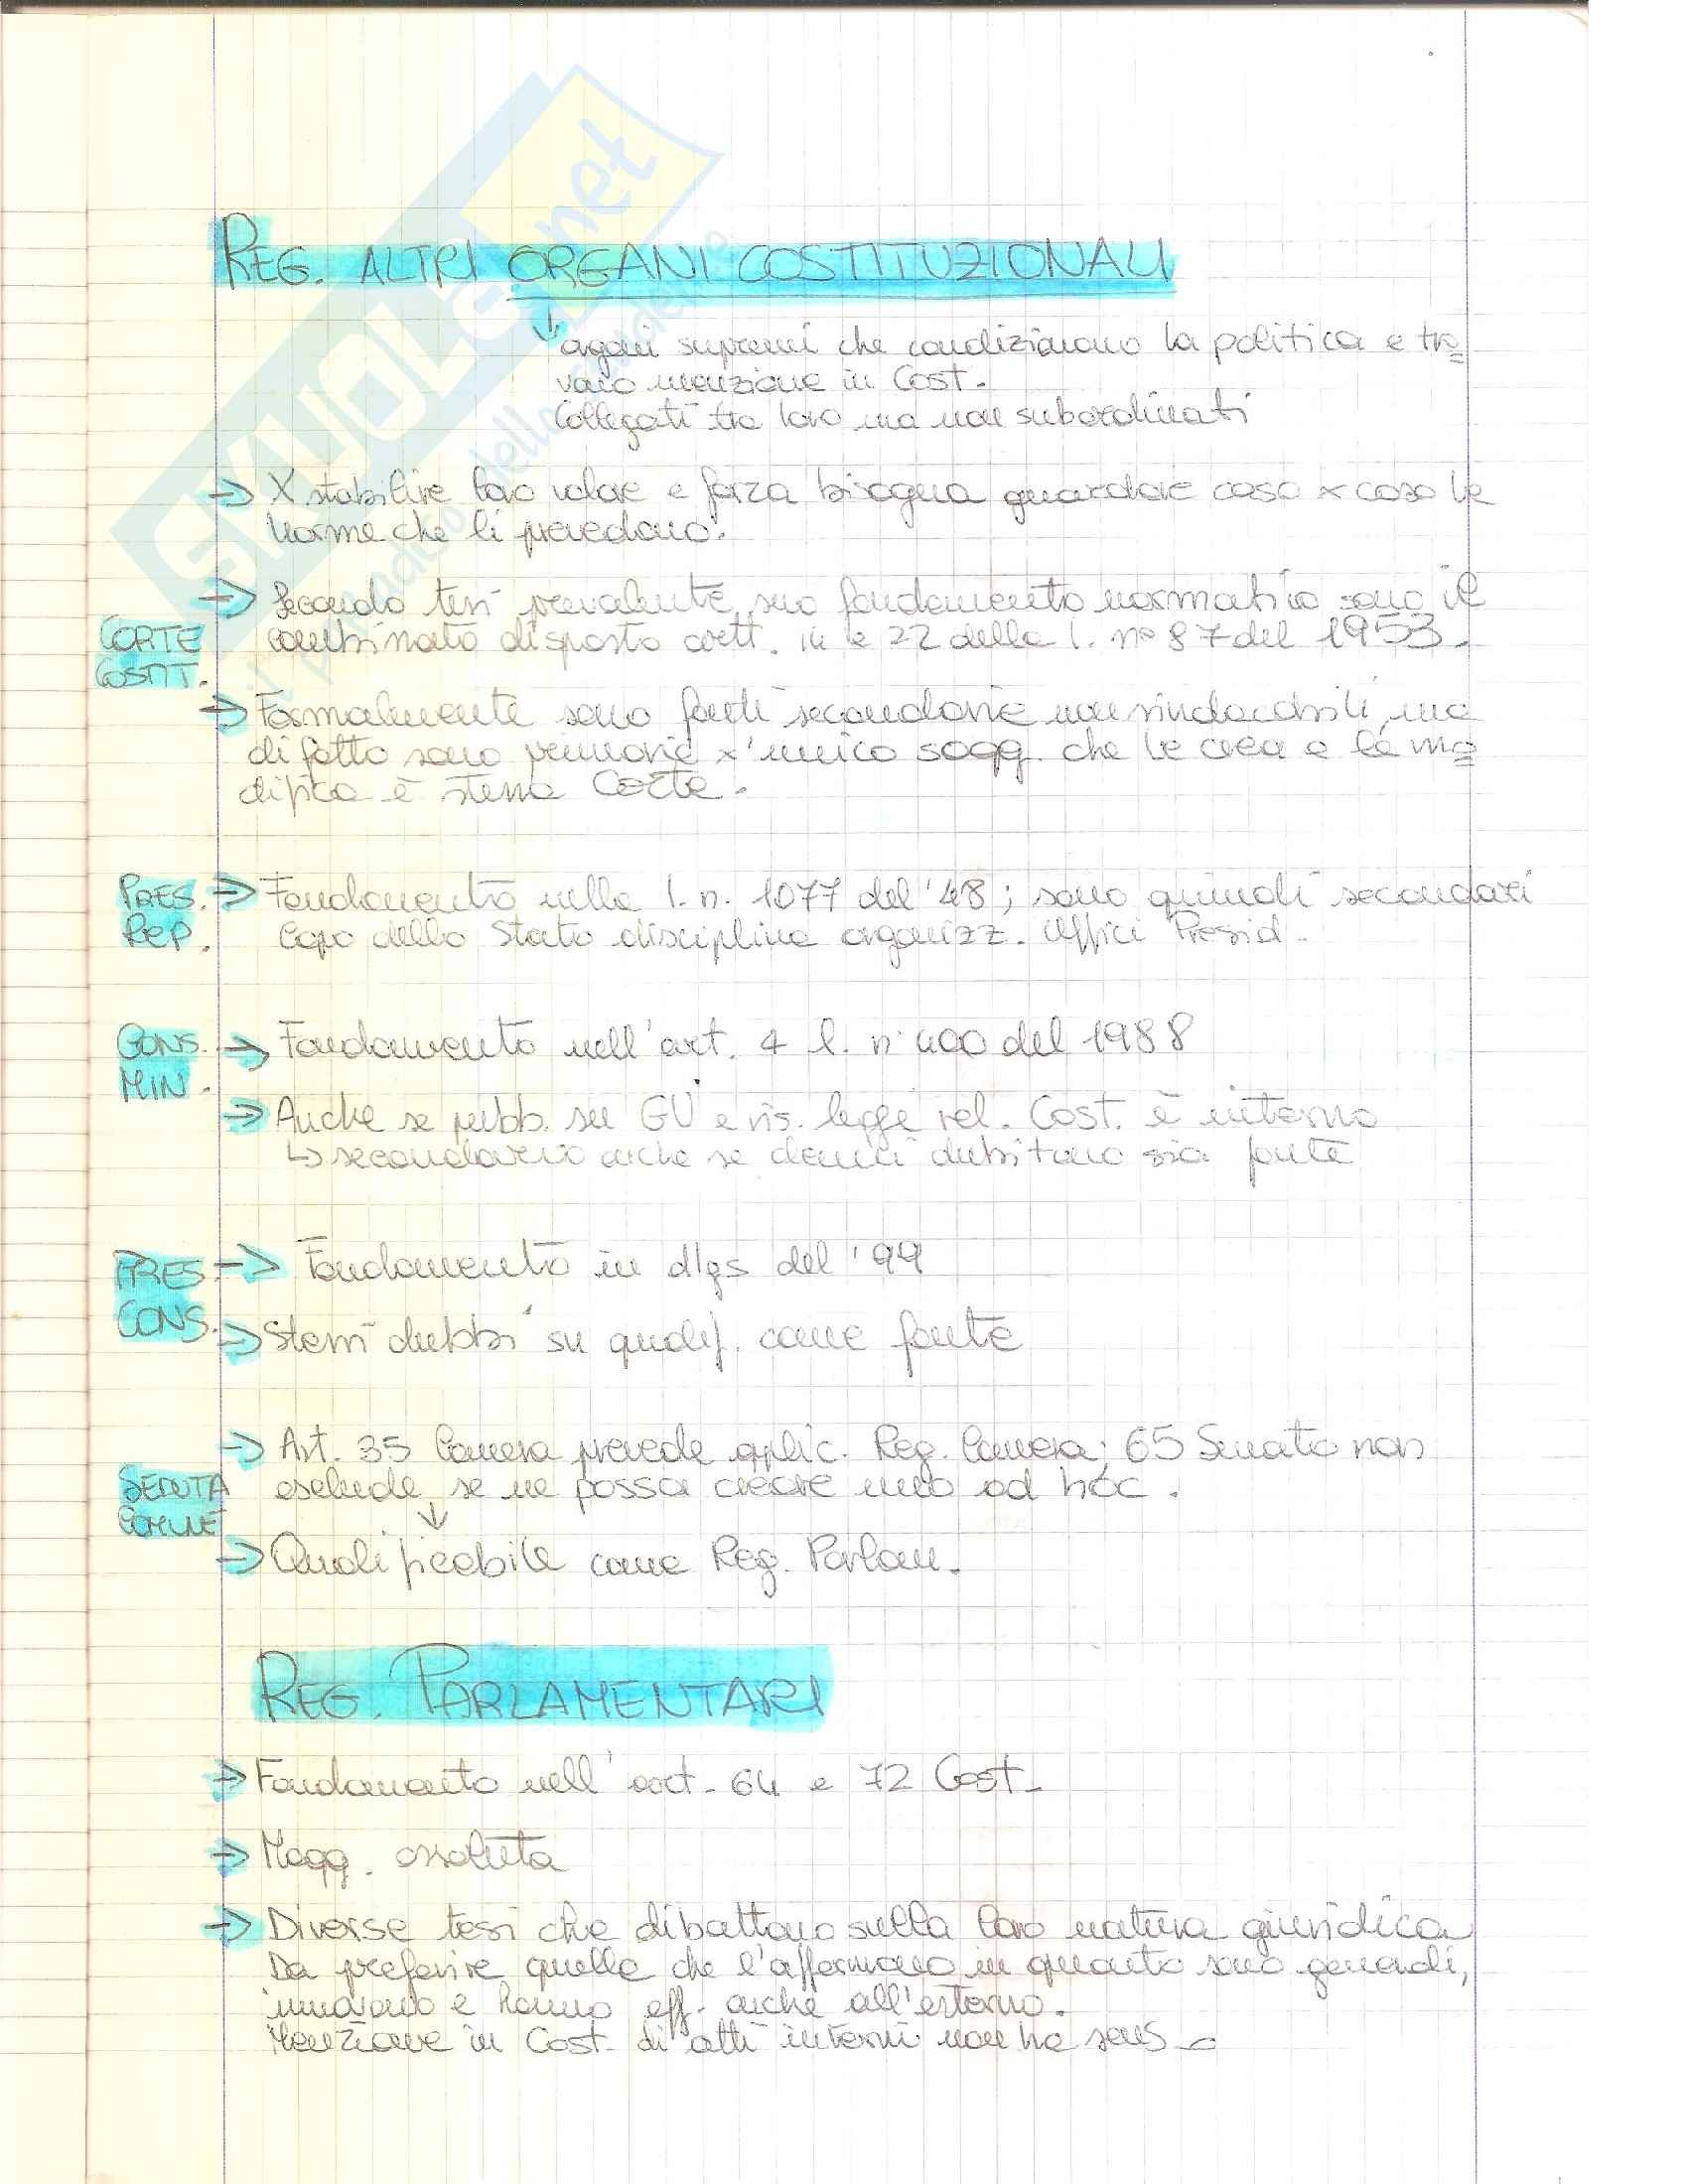 SKUOLA.net
il paradiso dello studente
REG. ALTRI ORGANI COSTITUZIONALI
↓ organi supremi che condizionano la politica e tro=
vano menzione in Cost.
Collegati tra loro ma non subordinati
→ X stabilire loro valore e forza bisogna guardare caso x caso le
norme che li prevedono.
→ Secondo tesi prevalente suo fondamento normativo sono il
CORTE
combinato disposto artt. 14 e 22 della l. n° 87 del 1953.
COSTIT.
→ Formalmente sono fonti secondarie non sindacabili, ma
di fatto sono primarie x' unico sogg. che le crea e le mo=
difica è stessa Corte.
PRES. → Fondamento nella l. n. 1077 del '48; sono quindi secondari
REP. Capo dello Stato disciplina organizz. Uffici Presid.
CONS. → Fondamento nell'art. 4 l. n° 400 del 1988
MIN.
→ Anche se pubb. su GU e ris. legge rel. Cost. è interno
↳ secondario anche se alcuni dubitano sia fonte
PRES. → Fondamento in dlgs del '99
CONS.
→ Stessi dubbi su qualif. come fonte
→ Art. 35 Camera prevede applic. Reg. Camera; 65 Senato non
SEDUTA esclude se ne possa creare uno ad hoc.
COMUNE ↓
→ Qualificabile come Reg. Parlam.
REG. PARLAMENTARI
→ Fondamento nell'art. 64 e 72 Cost.
→ Magg. assoluta
→ Diverse tesi che dibattono sulla loro natura giuridica
Da preferire quelle che l'affermano in quanto sono generali,
innovano e hanno eff. anche all'esterno.
Menzione in Cost. di atti interni non ha senso